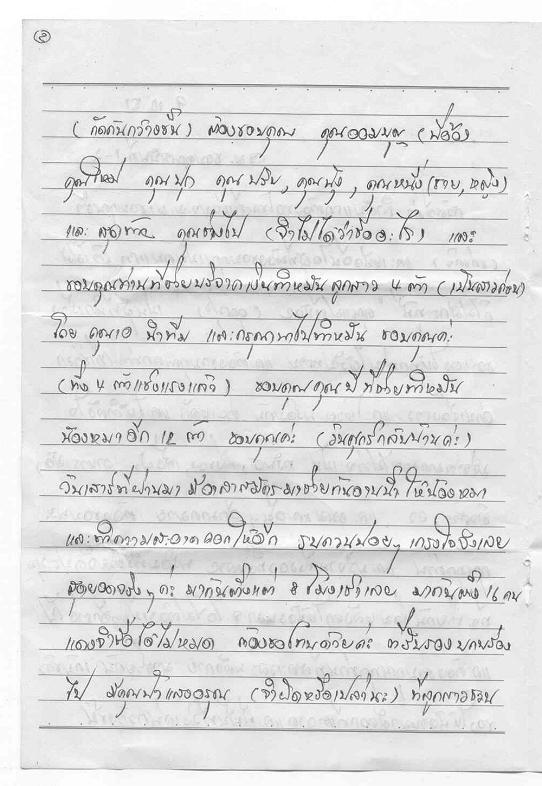 ②
(กัดกันกว่าอื่น) ต้องขอบคุณ คุณออมบุญ (พี่อ้อ)
คุณใหม่ คุณปุก คุณปริม, คุณนุ้ง, คุณหนึ่ง (ชาย, หญิง)
และ สุดท้าย คุณช่างไป (จำไม่ได้ว่าชื่ออะไร) และ
ขอบคุณท่านที่ช่วยบริจาคเงินทำหมัน ลูกสาว 4 ตัว (เป็นสาวก่อน)
โดย คุณเอ นำทีม และกรุณาพาไปทำหมัน ขอบคุณค่ะ
(ทั้ง 4 ตัวแข็งแรงแล้ว) ขอบคุณคุณบี ที่ช่วยทำหมัน
น้องหมาอีก 12 ตัว ขอบคุณค่ะ (วันศุกร์กลับบ้านค่ะ)
วันเสาร์ที่ผ่านมา มีอาสาสมัครมาช่วยกันอาบน้ำ ให้น้องหมา
และทำความสะอาดคอกให้อีก รบกวนบ่อยๆ เกรงใจจังเลย
สุดยอดจริงๆ ค่ะ มากันตั้งแต่ 8 โมงเช้าเลย มากันตั้ง 16 คน
แดงจำชื่อได้ไม่หมด ต้องขอโทษด้วยค่ะ ถ้าขาดตกบกพร่อง
ไป มีคุณน้ำ (จำผิดหรือเปล่านะ) ที่ลูกสาวชวน